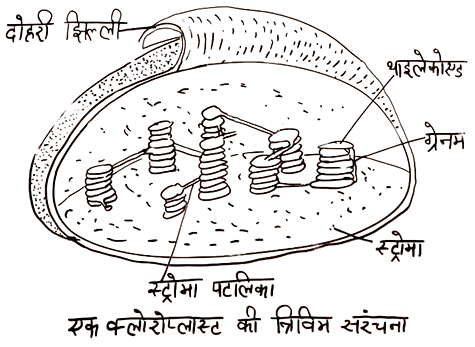 दोहरी झिल्ली
थाइलेकोएड
ग्रेनम
स्ट्रोमा
स्ट्रोमा पटलिका
एक क्लोरोप्लास्ट की त्रिविम सरंचना